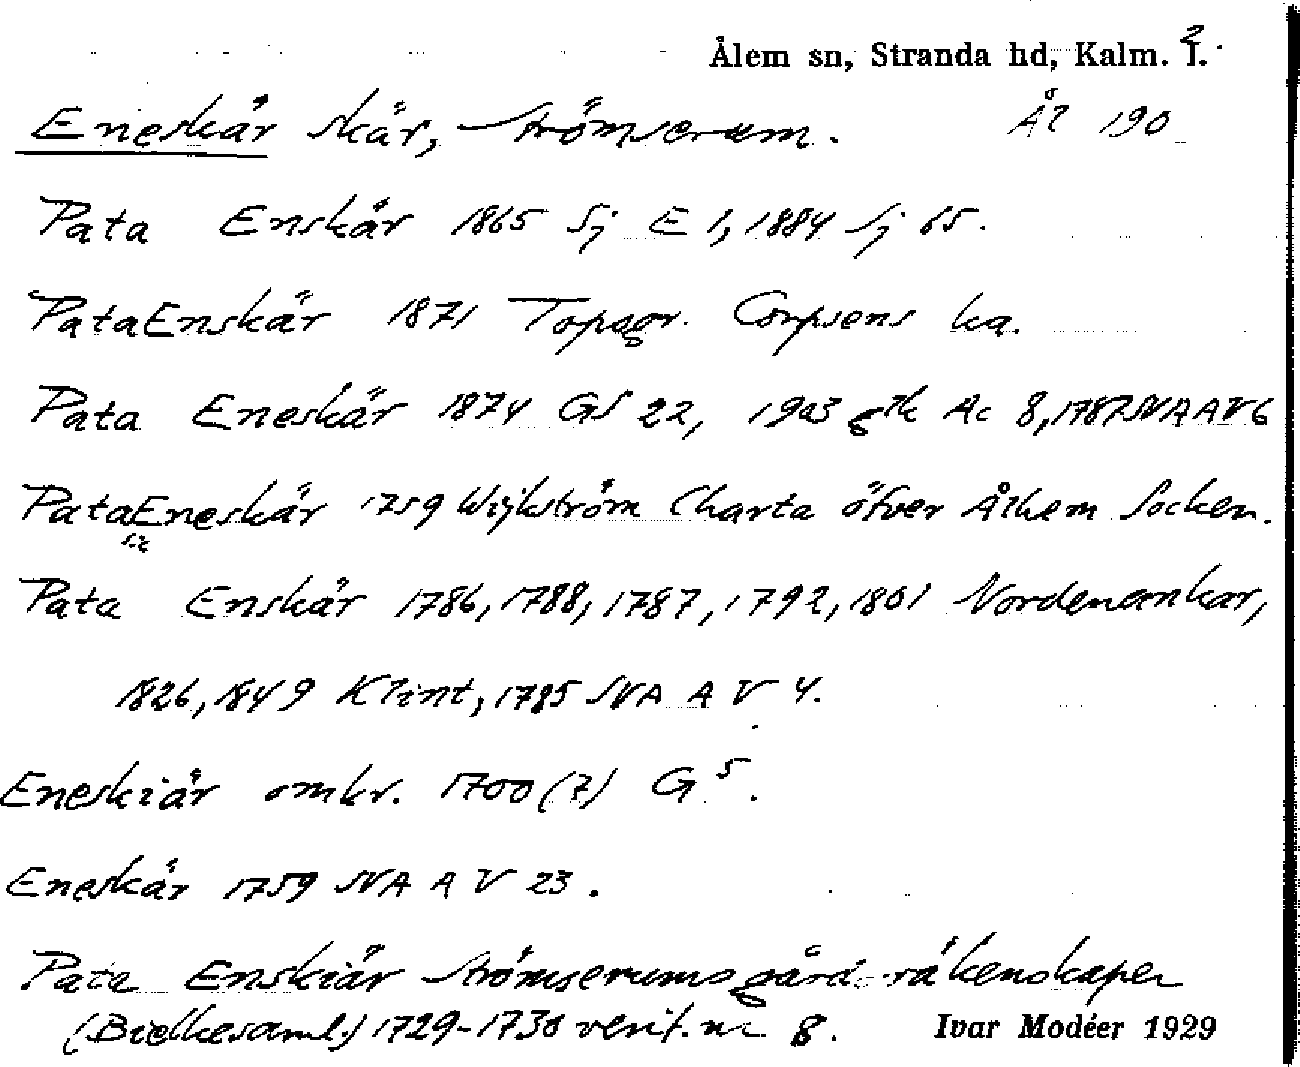 Ålem sn, Stranda hd, Kalm. l. 2
Eneskär skär, Strömserum. Ål 190
Pata Enskär 1865 Sj E 1, 1884 Sj 65.
PataEnskär 1871 Topogr. Corpsens ka.
Pata Eneskär 1874 GS 22, 1903 gtk Ac 8, 1787 SVA A V 6
PataEneskär 1759 Wijkström Charta öfver Ålhem Socken.
sic
Pata Enskär 1786, 1788, 1787, 1792, 1801 Nordenankar,
1826, 1849 Klint, 1785 SVA A V 4.
Eneskiär omkr. 1700 (?) G 5.
Eneskär 1759 SVA A V 23.
Pata Enskiär Strömserums gård räkenskaper
(Bielkesaml.) 1729-1730 verif. nr 8. Ivar Modéer 1929